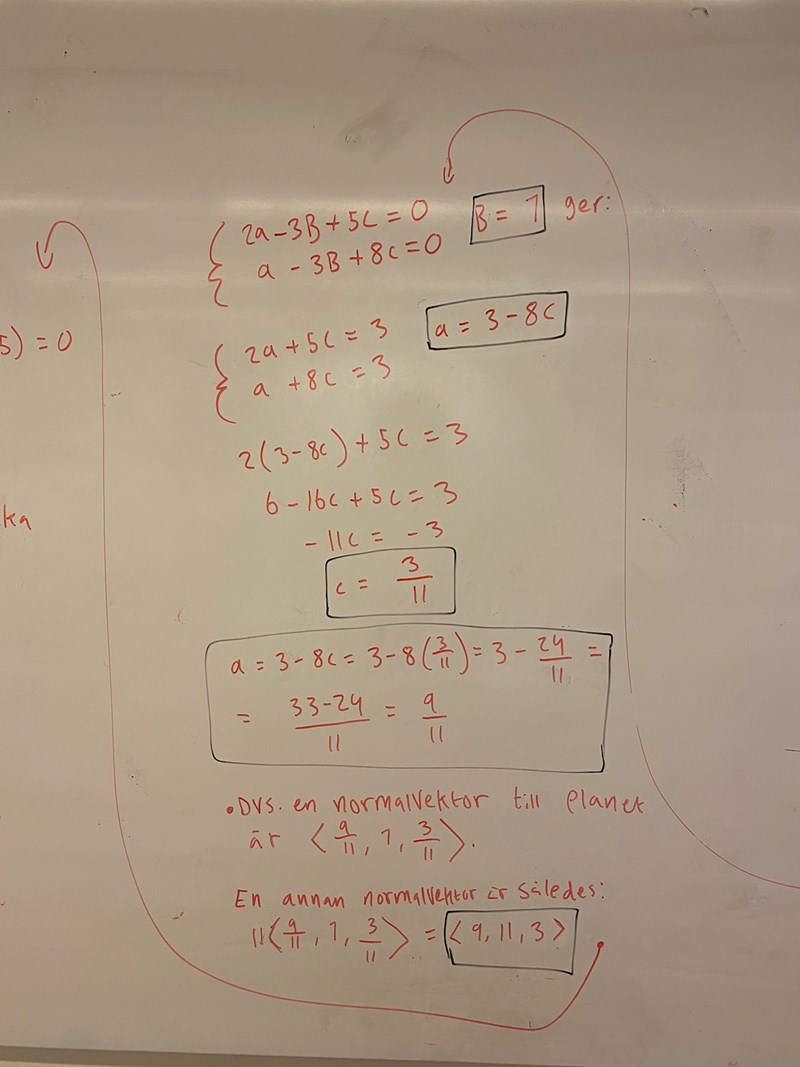 2a - 3B + 5c = 0
B = 1 ger:
a - 3B + 8c = 0
5) = 0
2a + 5c = 3
a = 3 - 8c
a + 8c = 3
2(3 - 8c) + 5c = 3
6 - 16c + 5c = 3
ka
- 11c = - 3
c = 3/11
a = 3 - 8c = 3 - 8(3/11) = 3 - 24/11 =
= 33-24/11 = 9/11
• DVS. en normalvektor till planet
är ⟨9/11, 1, 3/11⟩.
En annan normalvektor är således:
11⟨9/11, 1, 3/11⟩ = ⟨9, 11, 3⟩